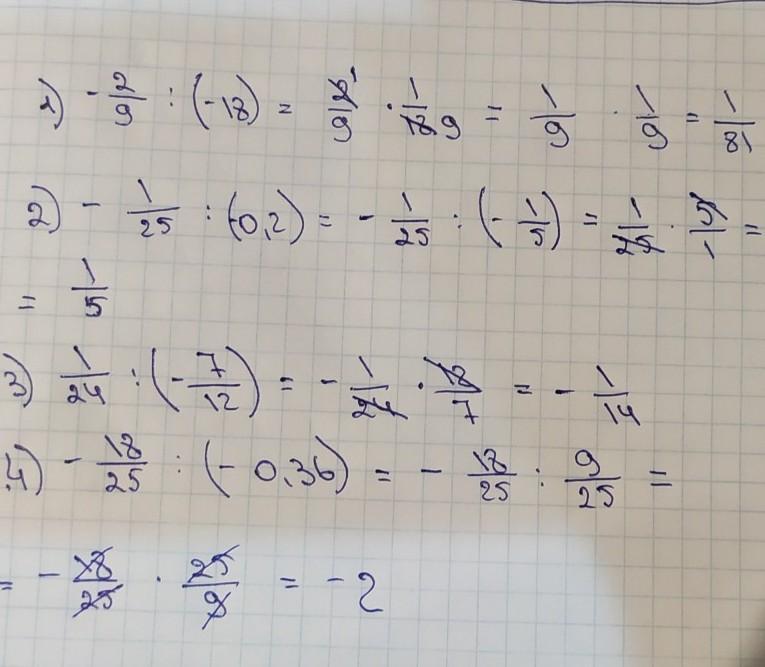 1) - 2/9 : (-18) = 2/9 ¹ · 1/18 9 = 1/9 · 1/9 = 1/81
2) - 1/25 : (-0,2) = - 1/25 : (- 1/5) = 1/25 · 5/1 =
= 1/5
3) 1/24 : (- 7/12) = - 1/24 · 12/7 = - 1/14
4) - 18/25 : (- 0,36) = - 18/25 : 9/25 =
= - 18/25 · 25/9 = -2